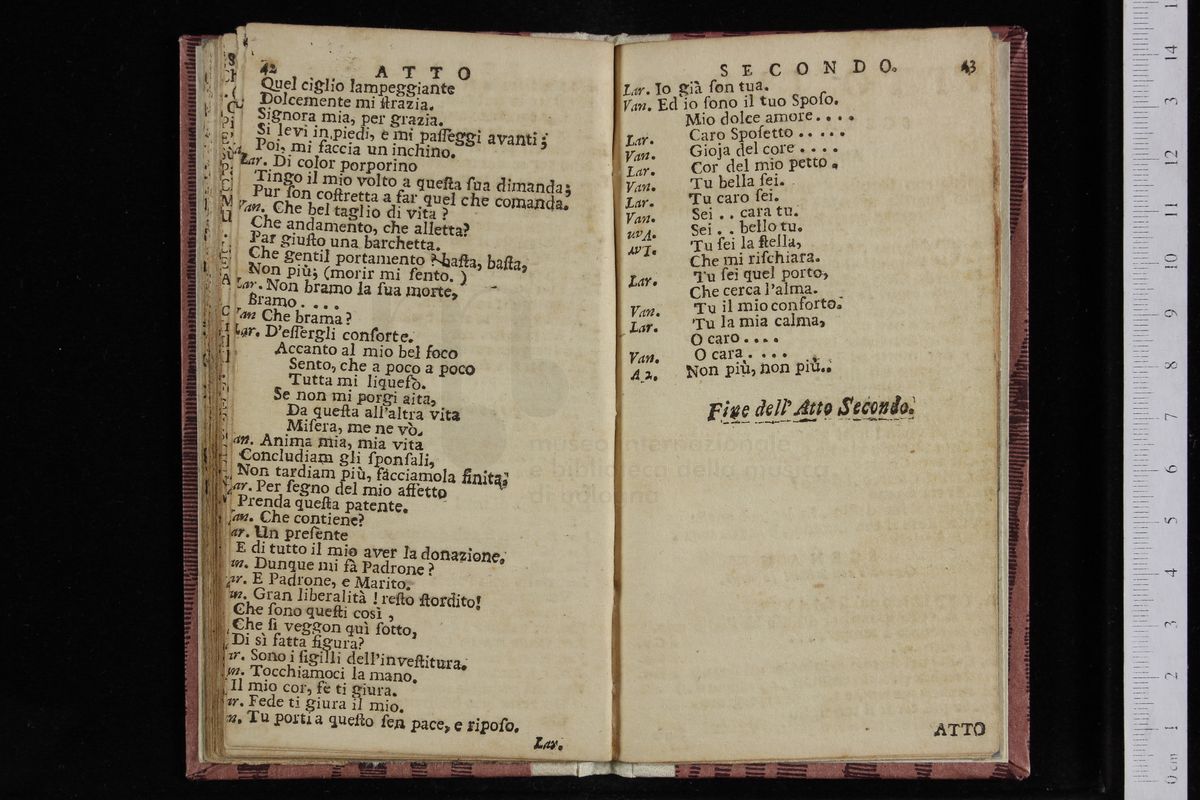 42 ATTO
Quel ciglio lampeggiante
Dolcemente mi ſtrazia.
Signora mia, per grazia.
Si levi in piedi, e mi paſſeggi avanti;
Poi, mi faccia un inchino.
Lar. Di color porporino
Tingo il mio volto a queſta ſua dimanda;
Pur ſon coſtretta a far quel che comanda.
Van. Che bel taglio di vita?
Che andamento, che alletta?
Par giuſto una barchetta.
Che gentil portamento? baſta, baſta,
Non più; (morir mi ſento.)
Lar. Non bramo la ſua morte,
Bramo....
Van Che brama?
Lar. D'eſſergli conforte.
Accanto al mio bel foco
Sento, che a poco a poco
Tutta mi liquefò.
Se non mi porgi aita,
Da queſta all'altra vita
Miſera, me ne vò.
an. Anima mia, mia vita
Concludiam gli ſponſali,
Non tardiam più, facciamola finita;
ar. Per ſegno del mio affetto
Prenda queſta patente.
an. Che contiene?
ar. Un preſente
E di tutto il mio aver la donazione.
n. Dunque mi fà Padrone?
ar. E Padrone, e Marito.
n. Gran liberalità! reſto ſtordito!
Che ſono queſti così,
Che ſi veggon quì ſotto,
Di sì fatta figura?
ar. Sono i ſigilli dell'inveſtitura.
n. Tocchiamoci la mano.
Il mio cor, fè ti giura.
ar. Fede ti giura il mio.
n. Tu porti a queſto ſen pace, e ripoſo.
Lar.
SECONDO. 43
Lar. Io già ſon tua.
Van. Ed io ſono il tuo Spoſo.
Mio dolce amore....
Lar. Caro Spoſetto.....
Van. Gioja del core....
Lar. Cor del mio petto.
Van. Tu bella ſei.
Lar. Tu caro ſei.
Van. Sei.. cara tu.
uvA. Sei.. bello tu.
Tu ſei la ſtella,
Che mi riſchiara.
Lar. Tu ſei quel porto,
Che cerca l'alma.
Van. Tu il mio conforto.
Lar. Tu la mia calma,
O caro....
Van. O cara....
A 2. Non più, non più..
Fine dell' Atto Secondo.
ATTO
museo internazionale
e biblioteca della musica
di bologna